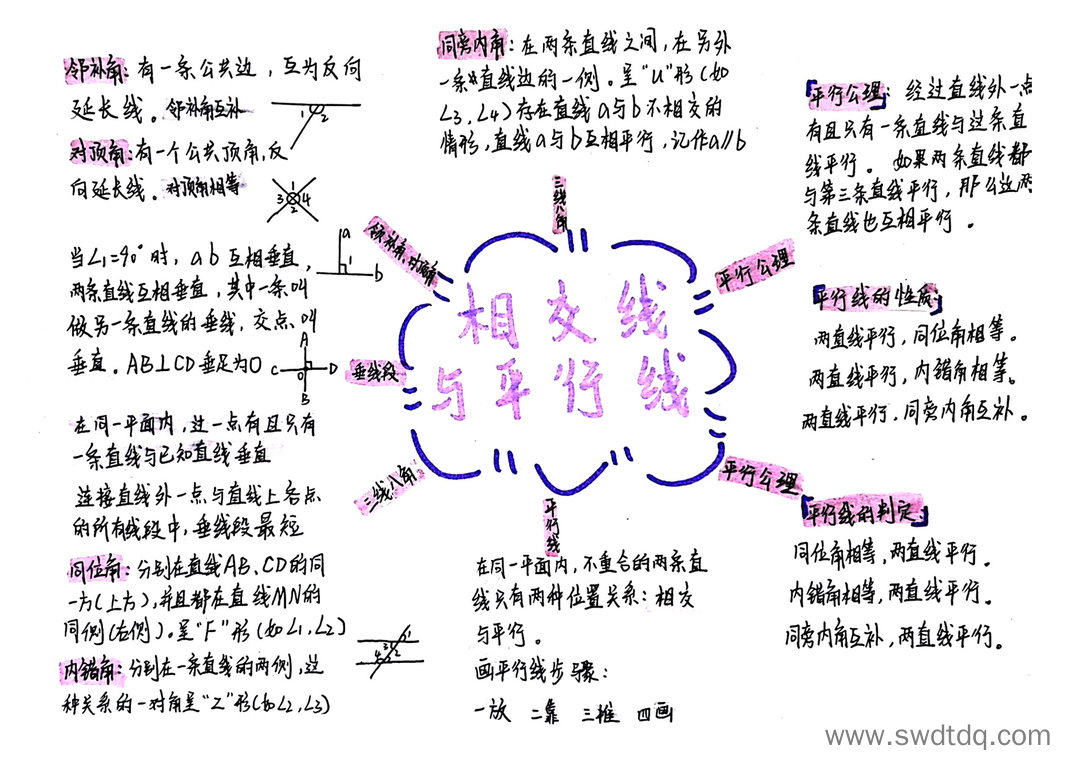 相交线
与平行线
邻补角、对顶角
邻补角：有一条公共边，互为反向
延长线。邻补角互补
1 2
对顶角：有一个公共顶角，反
向延长线。对顶角相等
1
3 4
2
垂线段
当∠1=90°时，a b 互相垂直，
两条直线互相垂直，其中一条叫
做另一条直线的垂线，交点叫
垂直。AB⊥CD垂足为O
a
1
b
A
C O D
B
在同一平面内，过一点有且只有
一条直线与已知直线垂直
连接直线外一点与直线上各点
的所有线段中，垂线段最短
三线八角
同位角：分别在直线AB、CD的同
一方(上方)，并且都在直线MN的
同侧(右侧)。呈“F”形(如∠1、∠2)
内错角：分别在一条直线的两侧，这
种关系的一对角呈“Z”形(如∠2、∠3)
1
3
4 2
三线八角
同旁内角：在两条直线之间，在另外
一条直线边的一侧。呈“U”形(如
∠3、∠4)存在直线a与b不相交的
情形，直线a与b互相平行，记作a∥b
平行线
在同一平面内，不重合的两条直
线只有两种位置关系：相交
与平行。
画平行线步骤：
一放 二靠 三推 四画
平行公理
平行公理：经过直线外一点
有且只有一条直线与这条直
线平行。如果两条直线都
与第三条直线平行，那么这两
条直线也互相平行。
平行线的性质
两直线平行，同位角相等。
两直线平行，内错角相等。
两直线平行，同旁内角互补。
平行公理
平行线的判定
同位角相等，两直线平行。
内错角相等，两直线平行。
同旁内角互补，两直线平行。
www.swdtdq.com